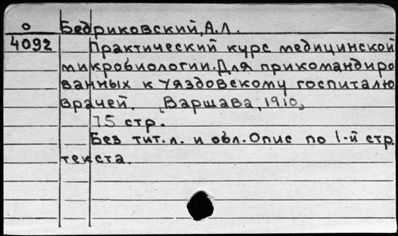 О Бедриковский, А.Л.
4092 Практический курс медицинской
микробиологии. Для прикомандиро
ванных к Уяздовскому госпиталю
врачей. [Варшава, 1910]
75 стр.
Без тит.л. и обл. Опис по 1-й стр
текста.